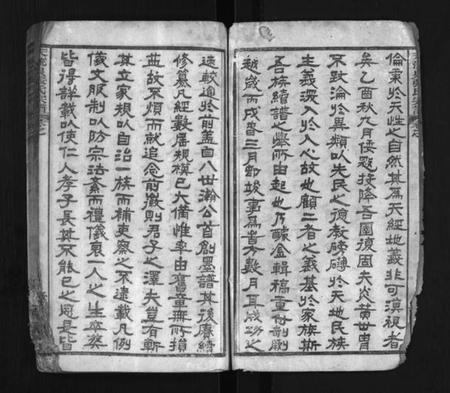 倫秉於天性之自然其為天經地義非可漠視者
矣乙酉秋九月倭寇投降吾國復固夫炎黃世胄
不致淪於異類以失民之德教磅礴於天地民族
主義深入於人心故也顧二者之義基於家族斯
吾族續譜之舉所由起也乃醵金輯稿重付剞劂
越歲丙戌春三月即竣事為書方數月耳成功之
速較適於前蓋自八世瀚公首創墨譜其後賡續
修纂凡經數屆規模已大備惟率由舊章無所損
益故不煩而就追念前徽則君子之澤夫豈有斬
其立家規以自治一族而補吏察之不逮載凡例
儀文服制以防宗法紊而禮儀衷一人之生卒葬
皆得詳載以使仁人孝子長其不能已之思是皆